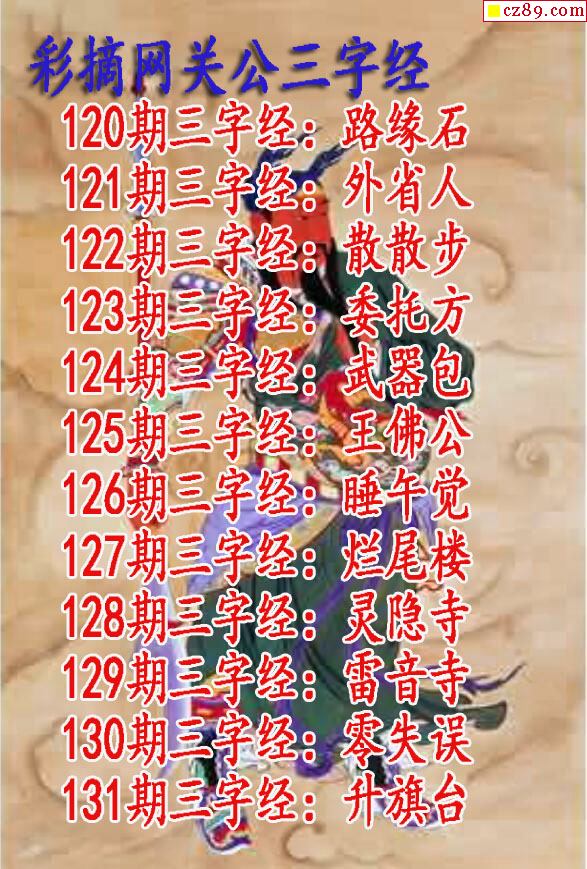 cz89.com
彩摘网关公三字经
120期三字经：路缘石
121期三字经：外省人
122期三字经：散散步
123期三字经：委托方
124期三字经：武器包
125期三字经：王佛公
126期三字经：睡午觉
127期三字经：烂尾楼
128期三字经：灵隐寺
129期三字经：雷音寺
130期三字经：零失误
131期三字经：升旗台